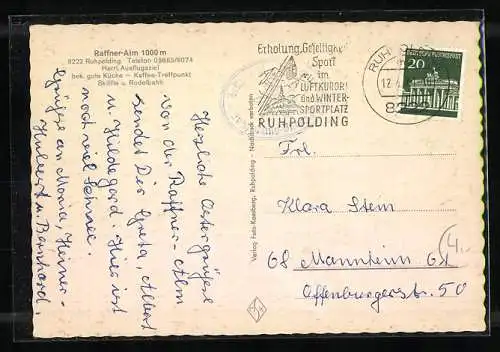 Raffner-Alm 1000 m
8222 Ruhpolding Telefon 08663/9074
Herrl. Ausflugsziel
bek. gute Küche — Kaffee-Treffpunkt
Skilifte u. Rodelbahn
Herzliche Ostergrüße
von der Raffner-Alm
sendet Dir Greta, Albert
u. Hildegard. Hier ist
noch viel Schnee.
Grüsse an Maria, Heiner-
Hubert u. Bernhard.
Verlag Foto Ruhpolding - Nachdruck verboten
Erholung, Geselligkeit
Sport
im
LUFTKURORT
und WINTER-
SPORTPLATZ
RUHPOLDING
RUHPOLDING
DEUTSCHE BUNDESPOST
20
Frl.
Klara Stein
68 Mannheim 61
Offenburgerstr. 50